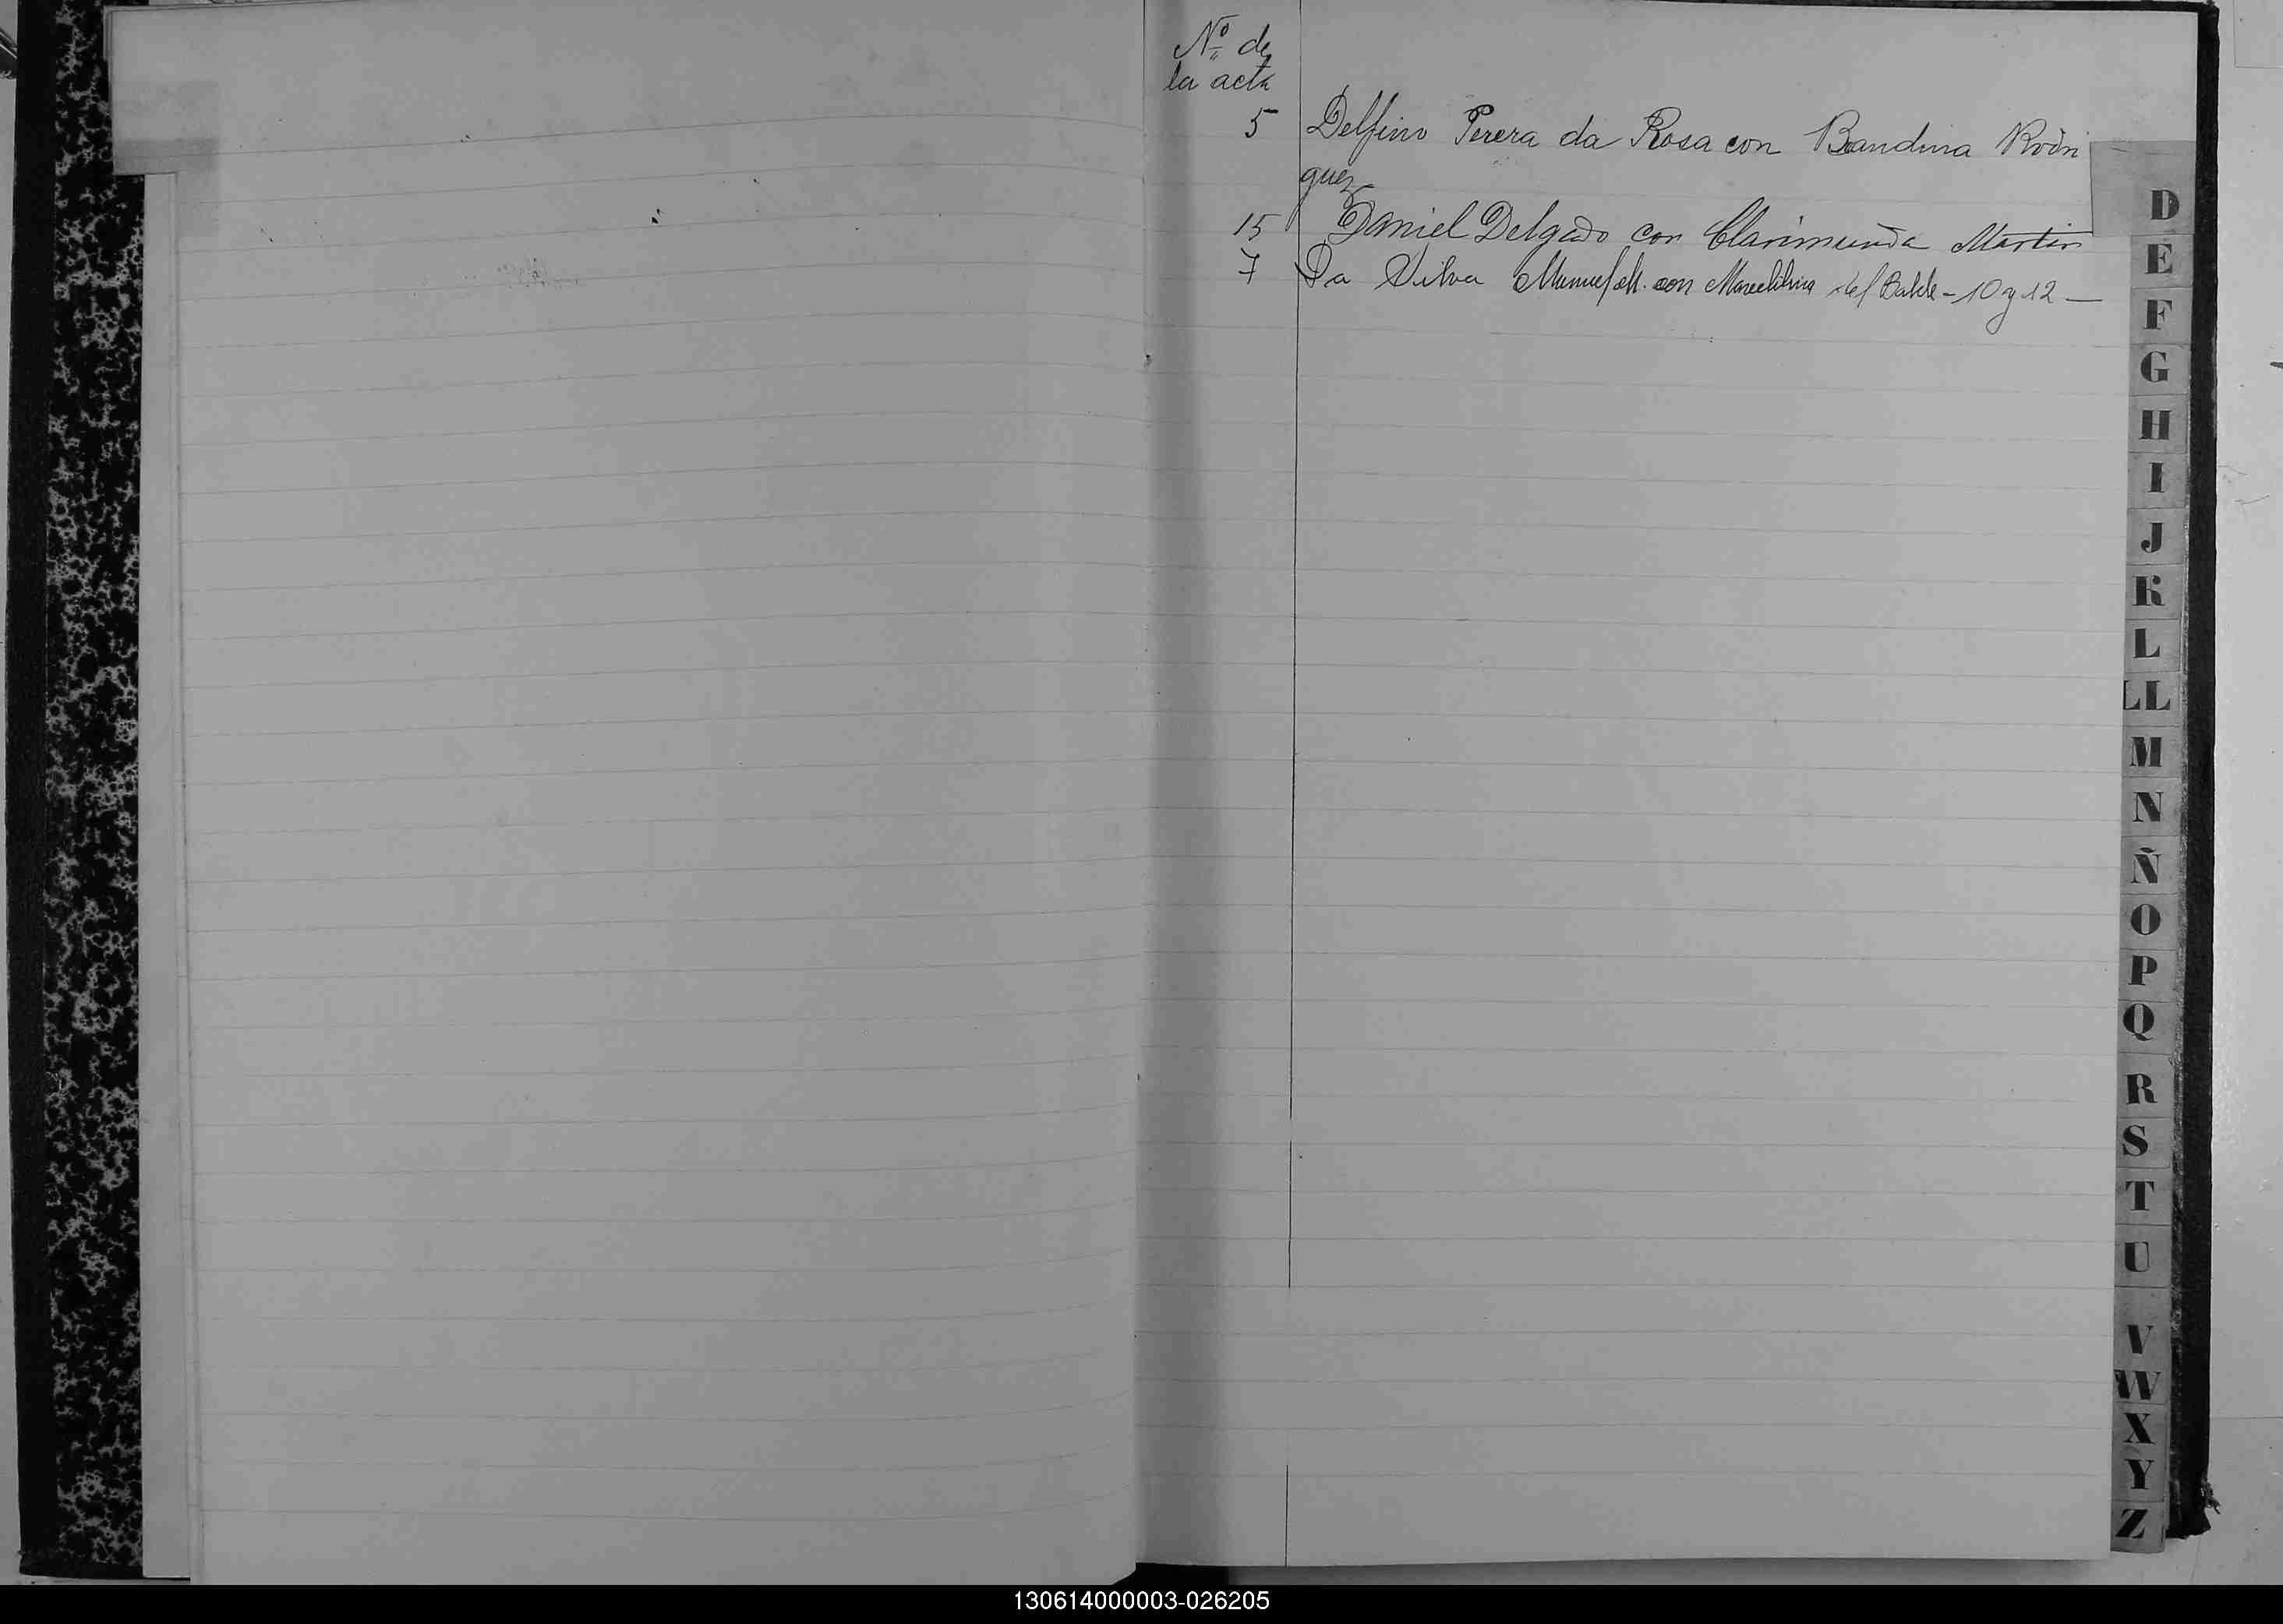 Nº de
la acta
5 Delfino Perera da Rosa con Bandina Rodri
guez
15 Daniel Delgado con Clarimunda Martin
7 Da Silva Manuel M. con Marcelina del Balde - 10 y 12 -
D
E
F
G
H
I
J
K
L
LL
M
N
Ñ
O
P
Q
R
S
T
U
V
W
X
Y
Z
130614000003-026205